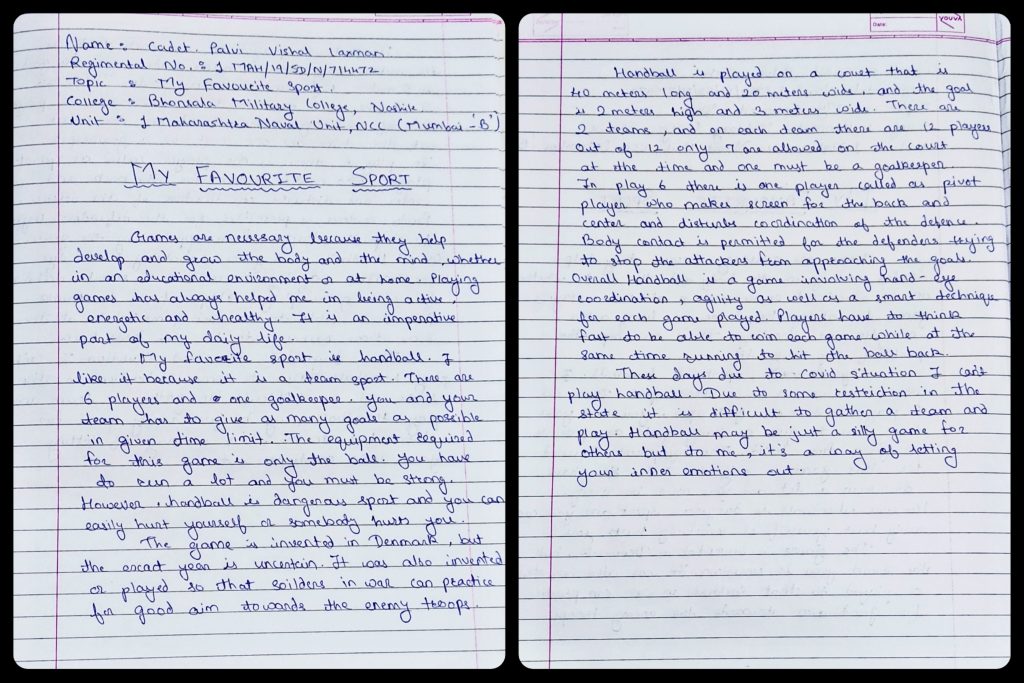 Name : Cadet. Palvi Vishal Laxman
Regimental No. : 1 MAH/19/SD/N/714472
Topic : My Favoucite Sport.
College : Bhonsala Military College, Nashik.
Unit : 1 Maharashtra Naval Unit, NCC (Mumbai-'B')
MY FAVOURITE SPORT
Games are necessary because they help
develop and grow the body and the mind, whether
in an educational environment or at home. Playing
games has always helped me in being active,
energetic and healthy. It is an imperative
part of my daily life.
My favorite sport is handball. I
like it because it is a team sport. There are
6 players and one goalkeeper. You and your
team has to give as many goals as possible
in given time limit. The equipment required
for this game is only the ball. You have
to run a lot and you must be strong.
However, handball is dangerous sport and you can
easily hurt yourself or somebody hurts you.
The game is invented in Denmark, but
the exact year is uncertain. It was also invented
or played so that soilders in war can practice
for good aim towards the enemy troops.
Date:
YOUVA
Handball is played on a court that is
40 meters long and 20 meters wide, and the goal
is 2 meters high and 3 meters wide. There are
2 teams, and on each team there are 12 players
Out of 12 only 7 are allowed on the court
at the time and one must be a goalkeeper.
In play 6 there is one player called as pivot
player who makes screen for the back and
center and disturbs coordination of the defence.
Body contact is permitted for the defenders trying
to stop the attackers from approaching the goals.
Overall Handball is a game involving hand-eye
coordination, agility as well as a smart technique
for each game played. Players have to think
fast to be able to win each game while at the
same time running to hit the ball back.
These days due to covid situation I can't
play handball. Due to some restriction in the
state it is difficult to gather a team and
play. Handball may be just a silly game for
others but to me, it's a way of letting
your inner emotions out.